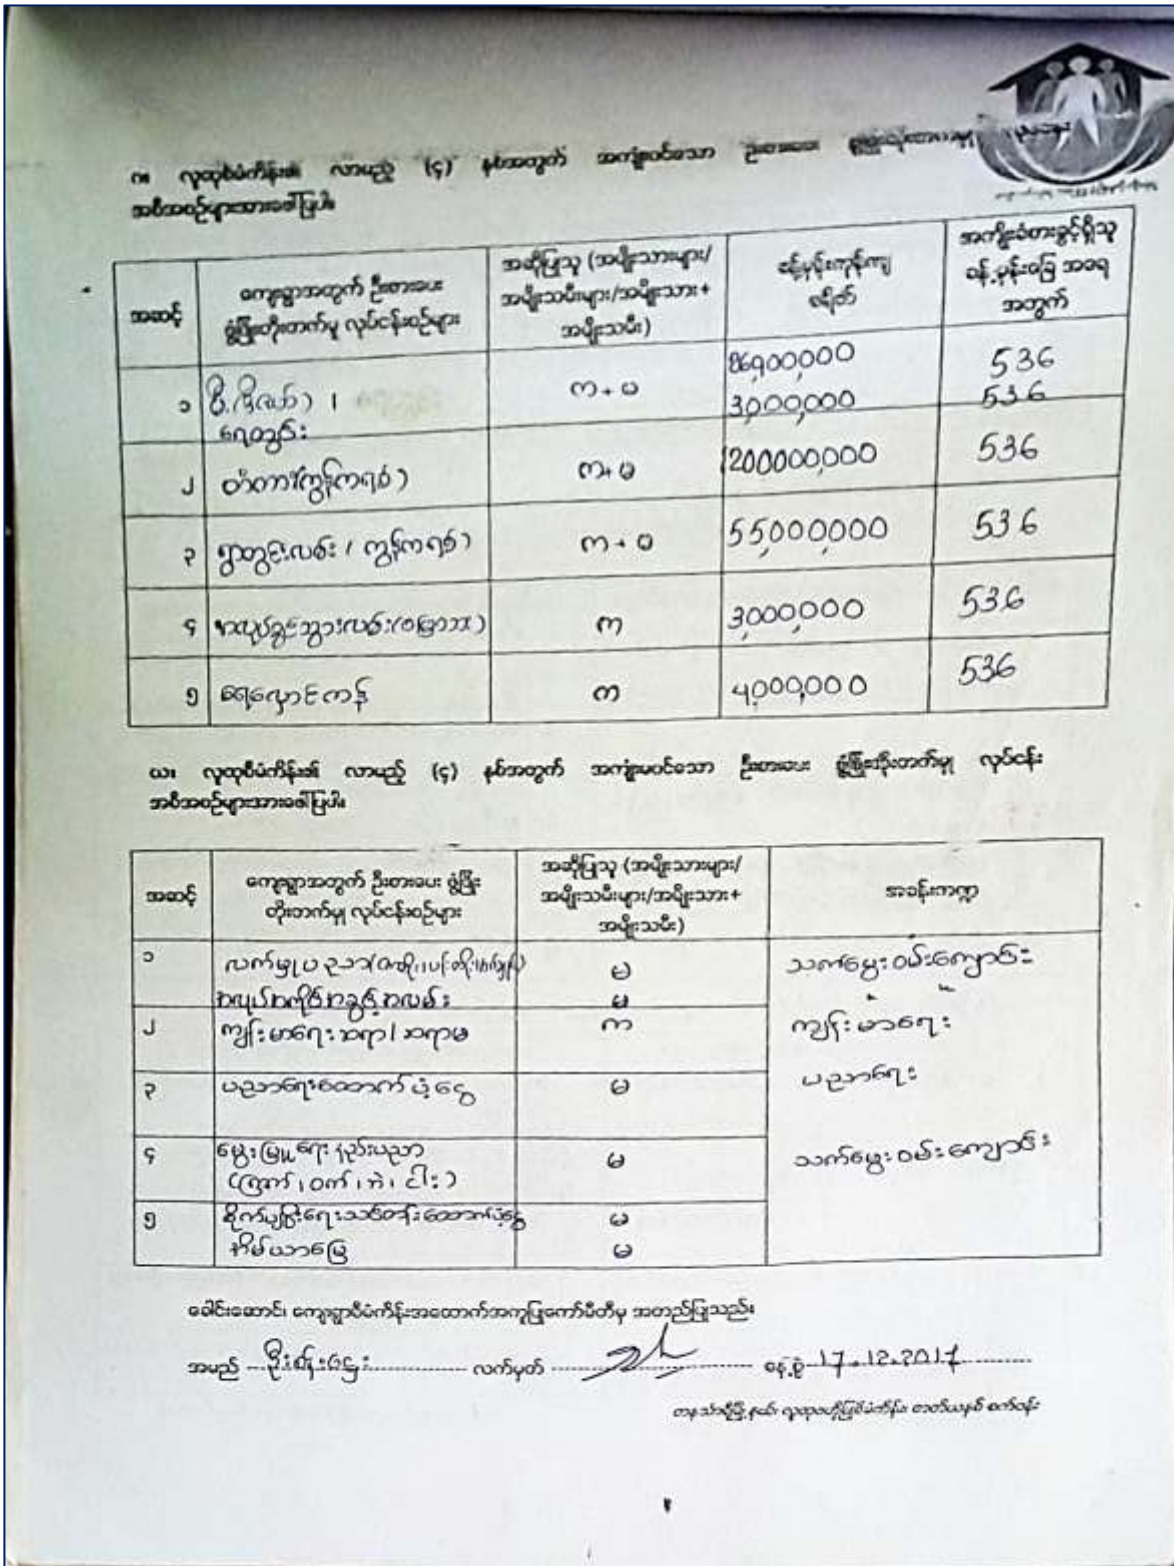 ဂ။ လူထုစီမံကိန်း၏ လာမည့် (၄) နှစ်အတွက် အကျုံးဝင်သော ဦးစားပေး
အစီအစဉ်များအားဖော်ပြပါ။
အဆင့်
ကျေးရွာအတွက် ဦးစားပေး
ဖွံ့ဖြိုးတိုးတက်မှု လုပ်ငန်းစဉ်များ
အဆိုပြုသူ (အမျိုးသားများ/
အမျိုးသမီးများ/အမျိုးသား+
အမျိုးသမီး)
ခန့်မှန်းကုန်ကျ
စရိတ်
အကျိုးခံစားခွင့်ရှိသူ
ခန့်မှန်းခြေ အရေ
အတွက်
၁
ရေတွင်း
က + မ
86900000
3,000,000
536
536
၂
တံတား(ကွန်ကရစ်)
က+မ
1200000,000
536
၃
ရွာတွင်းလမ်း (ကွန်ကရစ်)
က + မ
55,000,000
536
၄
က
3,000,000
536
၅
ရေလှောင်ကန်
က
4,000,000
536
ဃ။ လူထုစီမံကိန်း၏ လာမည့် (၄) နှစ်အတွက် အကျုံးမဝင်သော ဦးစားပေး ဖွံ့ဖြိုးတိုးတက်မှု လုပ်ငန်း
အစီအစဉ်များအားဖော်ပြပါ။
အဆင့်
ကျေးရွာအတွက် ဦးစားပေး ဖွံ့ဖြိုး
တိုးတက်မှု လုပ်ငန်းစဉ်များ
အဆိုပြုသူ (အမျိုးသားများ/
အမျိုးသမီးများ/အမျိုးသား+
အမျိုးသမီး)
အခန်းကဏ္ဍ
၁
လက်မှုပညာ
အလုပ်အကိုင်အခွင့်အလမ်း
မ
မ
သက်မွေးဝမ်းကျောင်း
၂
ကျန်းမာရေးဆရာ/ဆရာမ
က
ကျန်းမာရေး
၃
ပညာရေးထောက်ပံ့ငွေ
မ
ပညာရေး
၄
မွေးမြူရေးနည်းပညာ
(ကြက်၊ ဝက်၊ ဘဲ၊ ငါး)
မ
သက်မွေးဝမ်းကျောင်း
၅
စိုက်ပျိုးရေးသင်တန်းထောက်ပံ့ငွေ
အိမ်ယာမြေ
မ
မ
ခေါင်းဆောင်၊ ကျေးရွာစီမံကိန်းအထောက်အကူပြုကော်မီတီမှ အတည်ပြုသည်။
အမည် လက်မှတ် နေ့စွဲ 17.12.2017
တနင်္သာရီမြို့နယ်၊ လူထုဗဟိုပြုစီမံကိန်း၊ တတိယနှစ် စက်ဝန်း